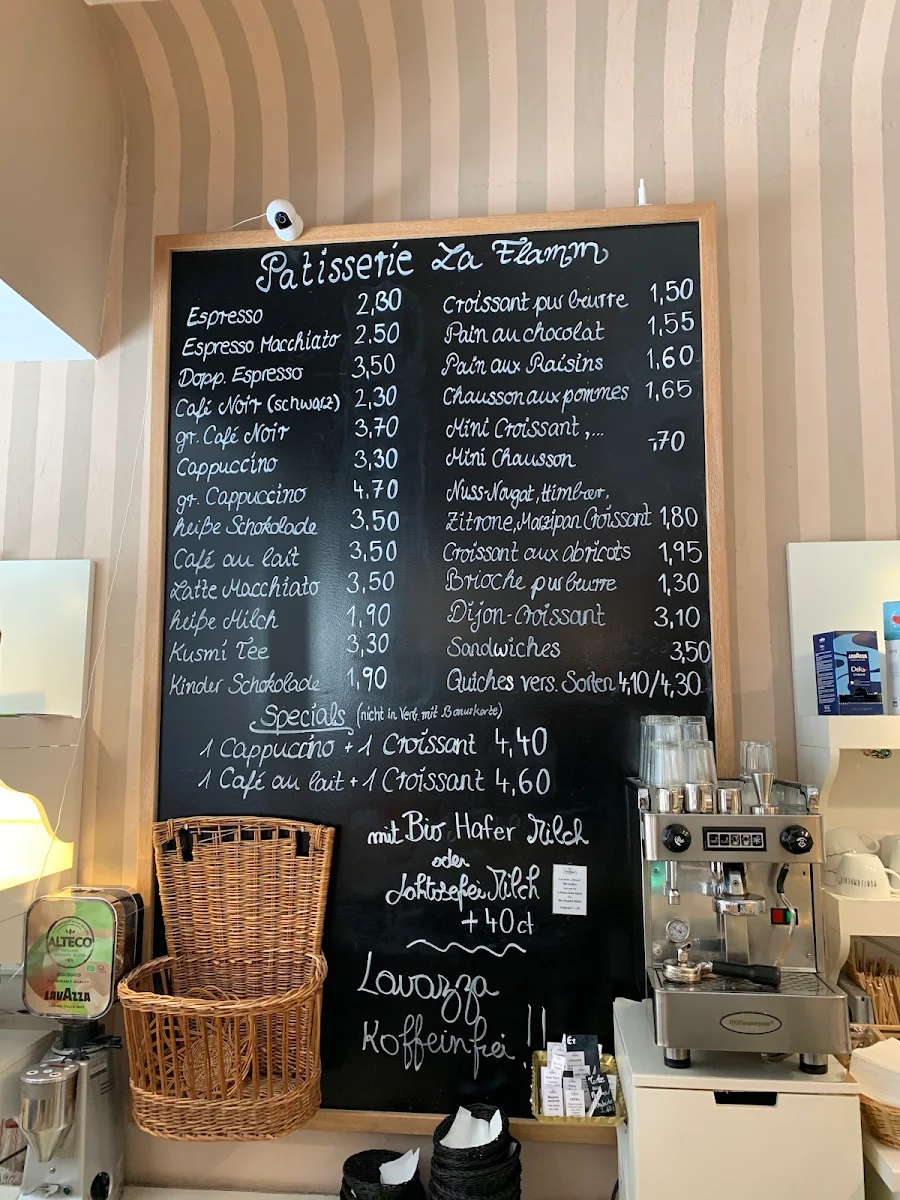 Patisserie La Flamm
Espresso 2,30
Espresso Macchiato 2.50
Dopp. Espresso 3,50
Café Noir (schwarz) 2,30
gr. Café Noir 3,70
Cappuccino 3,30
gr. Cappuccino 4.70
heiße Schokolade 3,50
Café au lait 3,50
Latte Macchiato 3,50
heiße Milch 1,90
Kusmi Tee 3,30
Kinder Schokolade 1,90
Croissant pur beurre 1,50
Pain au chocolat 1,55
Pain aux Raisins 1,60
Chausson aux pommes 1,65
Mini Croissant ,...
-,70
Mini Chausson
Nuss-Nougat, Himbeer,
Zitrone, Marzipan Croissant 1,80
Croissant aux abricots 1,95
Brioche pur beurre 1,30
Dijon-Croissant 3,10
Sandwiches 3,50
Quiches vers. Sorten 4,10/4,30
Specials (nicht in Verb. mit Bonuskarte)
1 Cappuccino + 1 Croissant 4,40
1 Café au lait + 1 Croissant 4,60
mit Bio Hafer Milch
oder
Laktosefrei Milch
+ 40 ct
Lavazza
Koffeinfrei !!
ALTECO
LAVAZZA
LAVAZZA
Dek